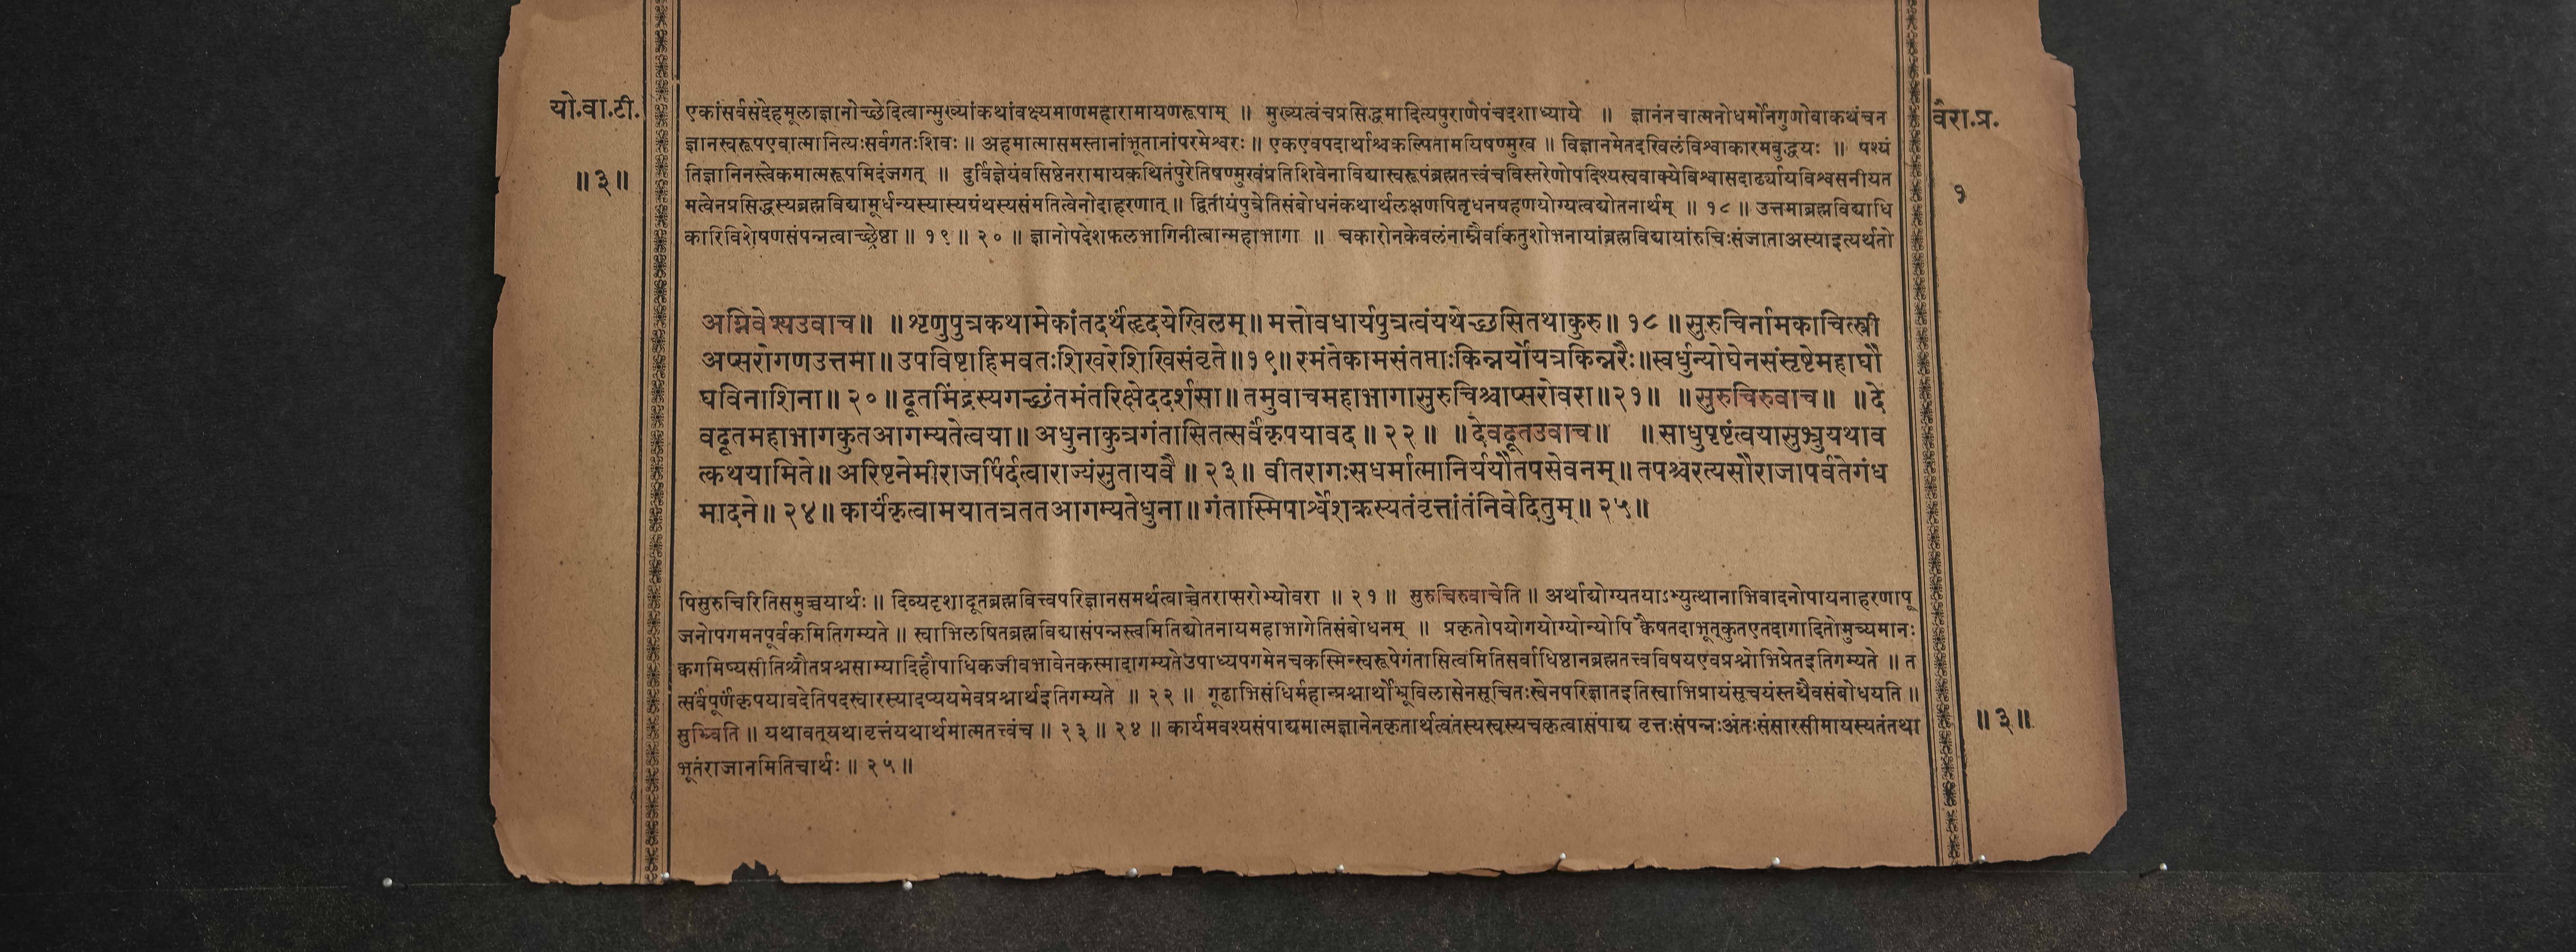 यो.वा.टी.
॥ ३ ॥
एकांसर्वसंदेहमूलाज्ञानोच्छेदित्वान्मुख्यांकथांवक्ष्यमाणमहारामायणरूपाम् ॥ मुख्यत्वंचप्रसिद्धमादित्यपुराणेपंचदशाध्याये ॥ ज्ञानंनचात्मनोधर्मोनगुणोवाकथंचन
ज्ञानस्वरूपएवात्मानित्यःसर्वगतःशिवः ॥ अहमात्मासमस्तानांभूतानांपरमेश्वरः ॥ एकएवपदार्थाश्चकल्पितामयिषण्मुख ॥ विज्ञानमेतदखिलंविश्वाकारमबुद्धयः ॥ पश्यं
तिज्ञानिनस्त्वेकमात्मरूपमिदंजगत् ॥ दुर्विज्ञेयंवसिष्ठेनरामायकथितंपुरेतिषण्मुखंप्रतिशिवेनाविद्यास्वरूपंब्रह्मतत्त्वंचविस्तरेणोपदिश्यस्ववाक्येविश्वासदार्ढ्यायविश्वसनीयत
मत्वेनप्रसिद्धस्यब्रह्मविद्यामूर्धन्यस्यास्यग्रंथस्यसंमतित्वेनोदाहरणात् ॥ द्वितीयंपुत्रेतिसंबोधनंकथार्थलक्षणपितृधनग्रहणयोग्यत्वद्योतनार्थम् ॥ १८ ॥ उत्तमाब्रह्मविद्याधि
कारिविशेषणसंपन्नत्वाच्छ्रेष्ठा ॥ १९ ॥ २० ॥ ज्ञानोपदेशफलभागिनीत्वान्महाभागा ॥ चकारोनकेवलंनाम्नैवकिंतुशोभनायांब्रह्मविद्यायांरुचिःसंजाताअस्याइत्यर्थतो
अग्निवेश्यउवाच ॥ ॥ शृणुपुत्रकथामेकांतदर्थंहृदयेखिलम् ॥ मत्तोवधार्यपुत्रत्वंयथेच्छसितथाकुरु ॥ १८ ॥ सुरुचिर्नामकाचित्स्त्री
अप्सरोगणउत्तमा ॥ उपविष्टाहिमवतःशिखरेशिखिसंवृते ॥ १९ ॥ रमंतेकामसंतप्ताःकिन्नर्योयत्रकिन्नरैः ॥ स्वर्धुन्योघेनसंसृष्टेमहाघौ
घविनाशिना ॥ २० ॥ दूतमिंद्रस्यगच्छंतमंतरिक्षेददर्शसा ॥ तमुवाचमहाभागासुरुचिश्चाप्सरोवरा ॥ २१ ॥ ॥ सुरुचिरुवाच ॥ ॥ दे
वदूतमहाभागकुतआगम्यतेत्वया ॥ अधुनाकुत्रगंतासितत्सर्वंकृपयावद ॥ २२ ॥ ॥ देवदूतउवाच ॥ ॥ साधुपृष्टंत्वयासुभ्रुयथाव
त्कथयामिते ॥ अरिष्टनेमीराजर्षिर्दत्वाराज्यंसुतायवै ॥ २३ ॥ वीतरागःसधर्मात्मानिर्ययौतपसेवनम् ॥ तपश्चरत्यसौराजापर्वतेगंध
मादने ॥ २४ ॥ कार्यंकृत्वामयातत्रततआगम्यतेधुना ॥ गंतास्मिपार्श्वेशक्रस्यतंवृत्तांतंनिवेदितुम् ॥ २५ ॥
पिसुरुचिरितिसमुच्चयार्थः ॥ दिव्यदृशादूतब्रह्मवित्त्वपरिज्ञानसमर्थत्वाच्चेतराप्सरोभ्योवरा ॥ २१ ॥ सुरुचिरुवाचेति ॥ अर्थाद्योग्यतयाऽभ्युत्थानाभिवादनोपायनाहरणापू
जनोपगमनपूर्वकमितिगम्यते ॥ स्वाभिलषितब्रह्मविद्यासंपन्नस्त्वमितिद्योतनायमहाभागेतिसंबोधनम् ॥ प्रकृतोपयोगयोग्योन्योपि कैषतदाभूत्कुतएतदागादितोमुच्यमानः
क्वगमिष्यसीतिश्रौतप्रश्नसाम्यादिहौपाधिकजीवभावेनकस्मादागम्यतेउपाध्यपगमेनचकस्मिन्स्वरूपेगंतासित्वमितिसर्वाधिष्ठानब्रह्मतत्त्वविषयएवप्रश्नोभिप्रेतइतिगम्यते ॥ त
त्सर्वंपूर्णंकृपयावदेतिपदस्वारस्यादप्ययमेवप्रश्नार्थइतिगम्यते ॥ २२ ॥ गूढाभिसंधिर्महान्प्रश्नार्थोभ्रूविलासेनसूचितःस्वेनपरिज्ञातइतिस्वाभिप्रायंसूचयंस्तथैवसंबोधयति ॥
सुभ्र्विति ॥ यथावत्यथावृत्तंयथार्थमात्मतत्त्वंच ॥ २३ ॥ २४ ॥ कार्यमवश्यसंपाद्यमात्मज्ञानेनकृतार्थत्वंतस्यस्वस्यचकृत्वासंपाद्य वृत्तःसंपन्नःअंतःसंसारसीमायस्यतंतथा
भूतंराजानमितिचार्थः ॥ २५ ॥
वैरा.प्र.
१
॥ ३ ॥